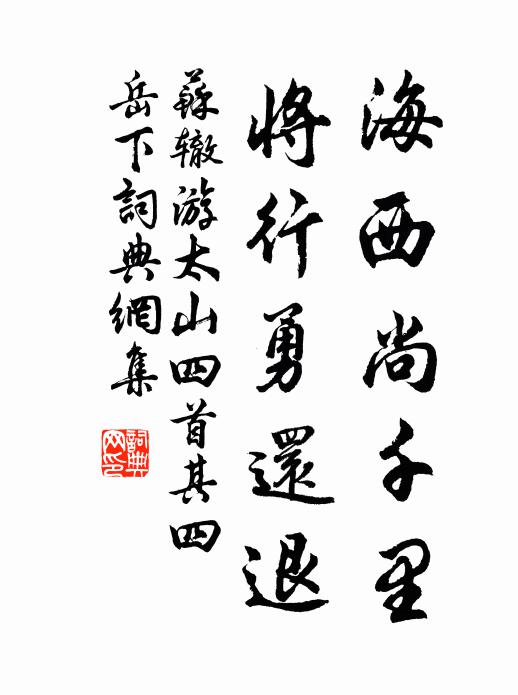 海西尚千里
將行勇還退
蘇辙游太山四首其四
岳下詞典網集
詞典
网印